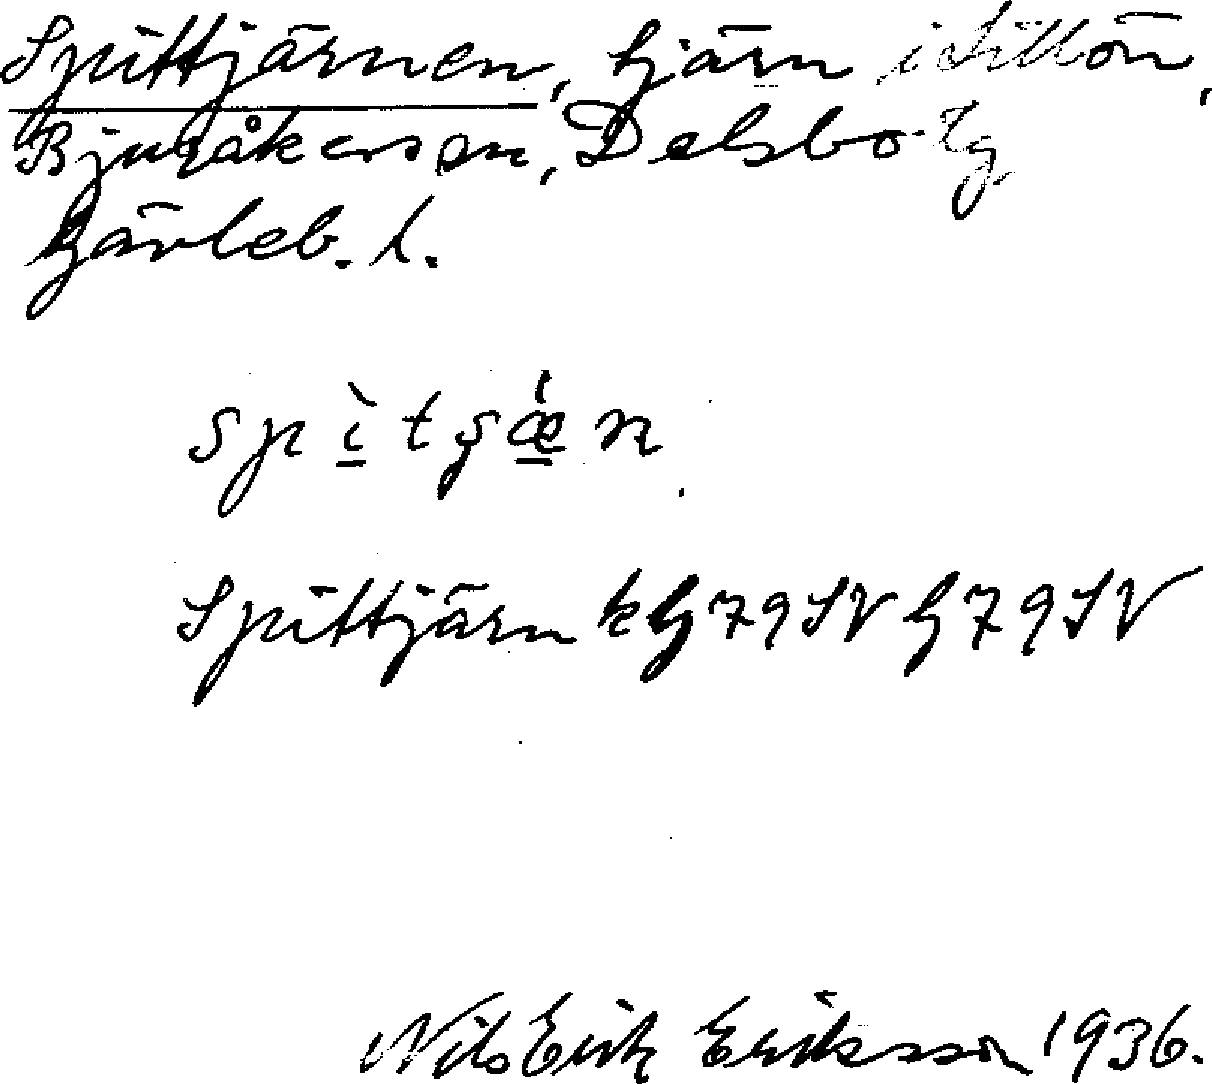 Spittjärnen, tjärn i Sillön,
Bjuråkers sn, Delsbo tg
Gävleb. l.
spìtʂǽn
Spittjärn kG79SV G79SV
Nils Erik Eriksson 1936.